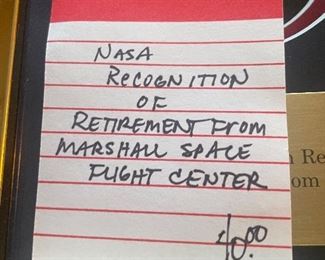 NASA
RECOGNITION
OF
RETIREMENT FROM
MARSHALL SPACE
FLIGHT CENTER
40.00
n Re
om